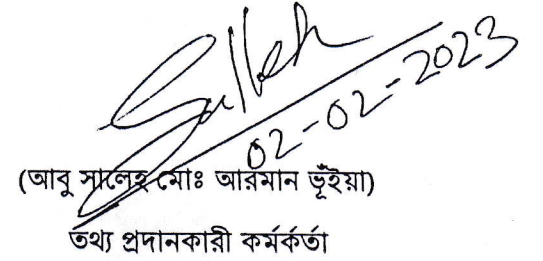 Salleh
02-02-2023
(আবু সালেহ মোঃ আরমান ভূঁইয়া)
তথ্য প্রদানকারী কর্মর্কর্তা